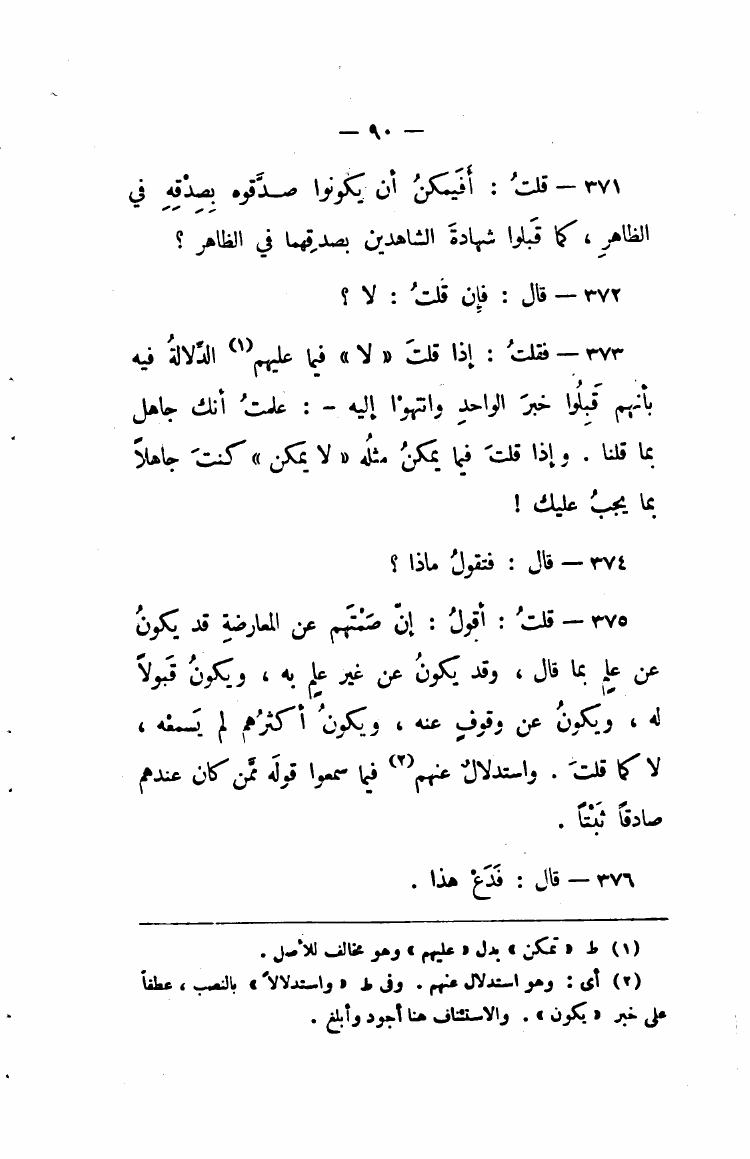 — ٩٠ —
٣٧١ — قلتُ : أَفَيمكنُ أن يكونوا صدَّقوه بِصِدْقِهِ في
الظاهرِ ، كما قَبلوا شهادةَ الشاهدين بصدقِهما في الظاهر ؟
٣٧٢ — قال : فإِن قلتُ : لا ؟
٣٧٣ — فقلتُ : إذا قلتَ « لا » فيما عليهم(١) الدَّلالةُ فيه
بأنهم قَبِلُوا خبرَ الواحدِ وانتهوْا إليه – : علمتُ أنك جاهل
بما قلنا . وإذا قلتَ فيما يمكنُ مثلُه « لا يمكن » كنتَ جاهلاً
بما يجبُ عليك !
٣٧٤ — قال : فتقولُ ماذا ؟
٣٧٥ — قلتُ : أقولُ : إنّ صَمْتَهم عن المعارضةِ قد يكونُ
عن علمٍ بما قال ، وقد يكونُ عن غير علمٍ به ، ويكونُ قَبولاً
له ، ويكونُ عن وقوفٍ عنه ، ويكونُ أكثرُهم لم يَسمعْه ،
لا كما قلتَ . واستدلالٌ عنهم(٢) فيما سمعوا قولَه ممَّن كان عندهم
صادقاً ثَبْتاً .
٣٧٦ — قال : فَدَعْ هذا .
(١) ط « تمكن » بدل « عليهم » وهو مخالف للأصل .
(٢) أى : وهو استدلال عنهم . وفى ط « واستدلالاً » بالنصب ، عطفاً
على خبر « يكون » . والاستئناف هنا أجود وأبلغ .